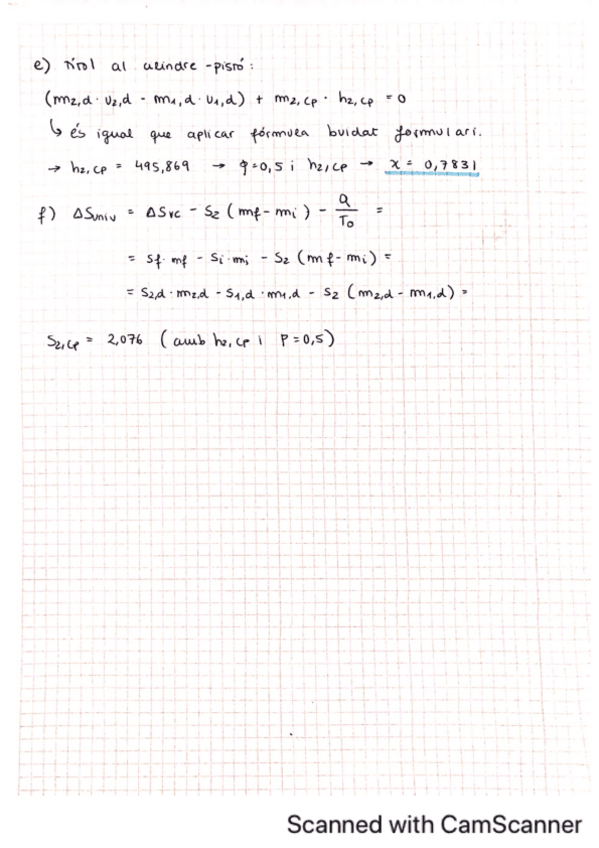 e) títol al cilindre-pistó:
(m2,d · u2,d - m1,d · u1,d) + m2,cp · h2,cp = 0
↳ és igual que aplicar fórmula buidat formulari.
→ h2,cp = 495,869 → p=0,5 i h2,cp → x = 0,7831
f) ΔSuniv = ΔSVC - S2 (mf - mi) - Q/T0 =
= Sf · mf - Si · mi - S2 (mf - mi) =
= S2,d · m2,d - S1,d · m1,d - S2 (m2,d - m1,d) =
S2,cp = 2,076 (amb h2,cp i P = 0,5)
Scanned with CamScanner